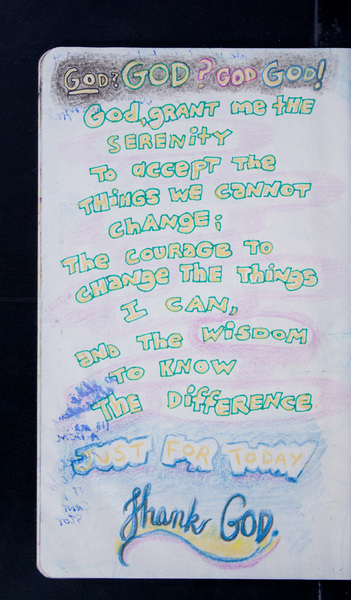 GOD? GOD? GOD GOD!
God, GRANT me tHE
SERENity
To accept The
THiNGS WE CANNOT
CHANGE;
The COURAGE TO
CHANGE THE THiNGS
I CAN,
AND THE WiSDOM
TO KNOW
THE DiffERENCE
JUST FOR TODAY
Thank GOD.